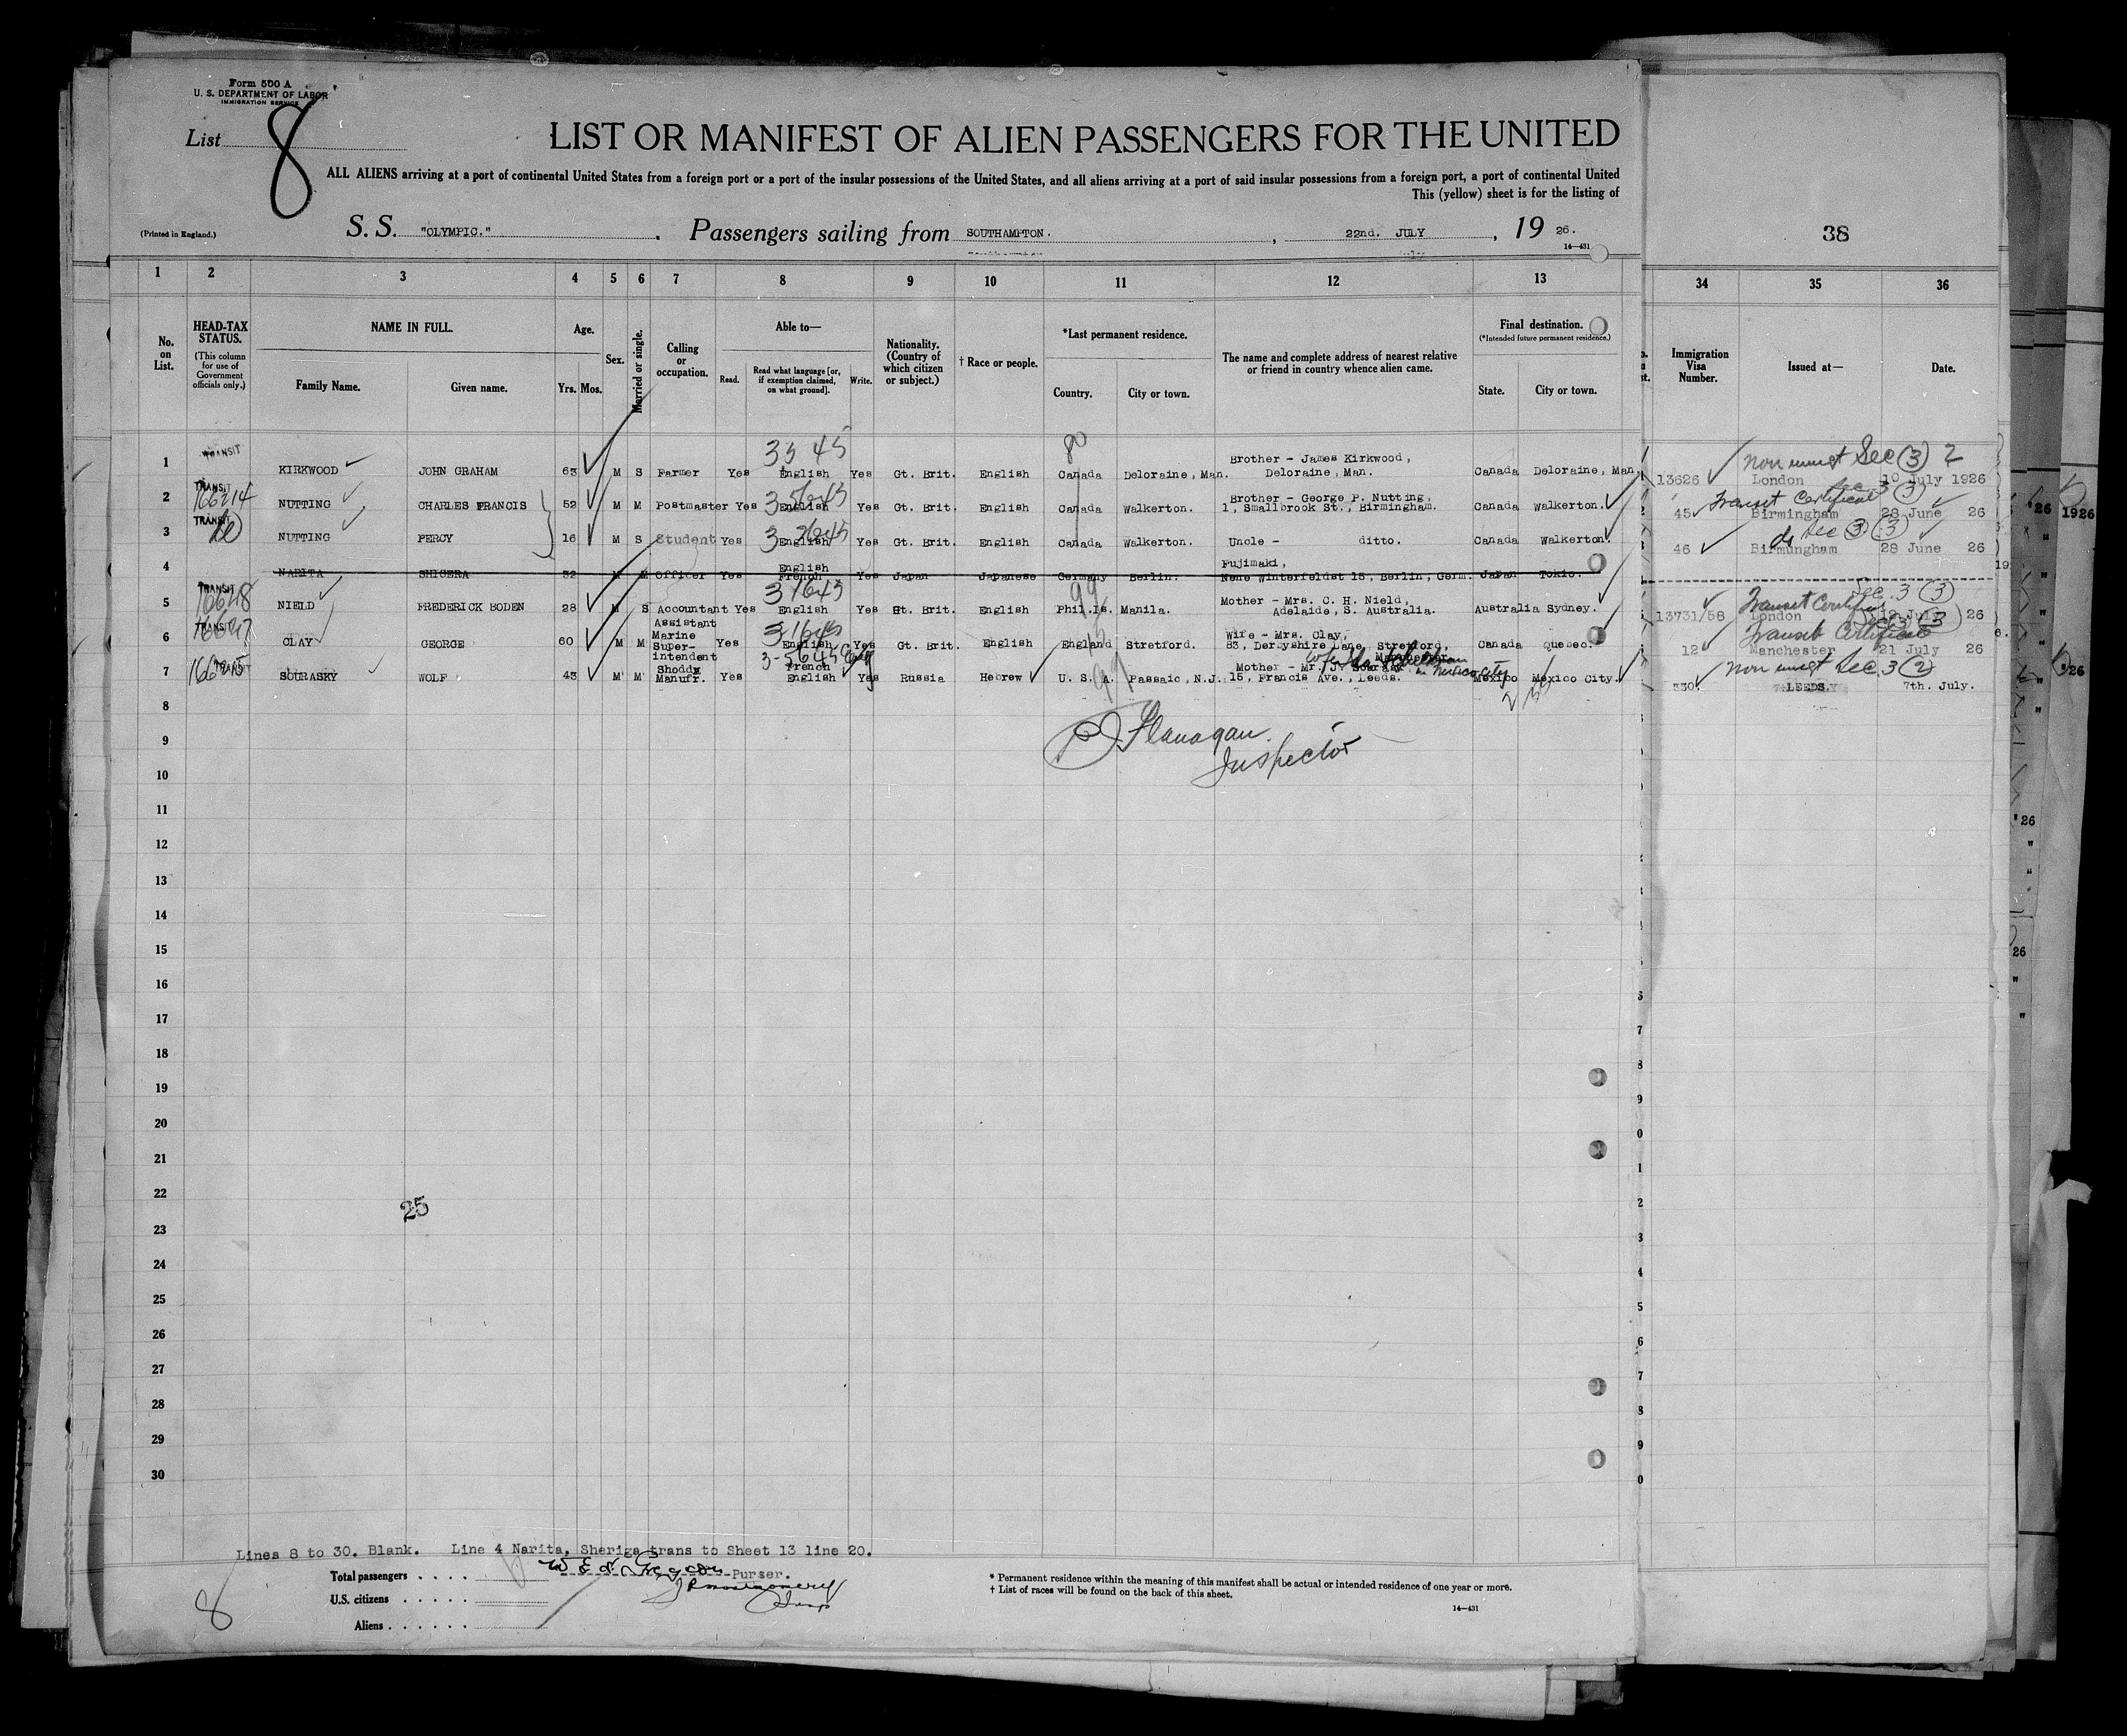 Form 500 A
U. S. DEPARTMENT OF LABOR
IMMIGRATION SERVICE
List 8
LIST OR MANIFEST OF ALIEN PASSENGERS FOR THE UNITED
ALL ALIENS arriving at a port of continental United States from a foreign port or a port of the insular possessions of the United States, and all aliens arriving at a port of said insular possessions from a foreign port, a port of continental United
This (yellow) sheet is for the listing of
(Printed in England.)
S. S. "OLYMPIC." Passengers sailing from SOUTHAMPTON. , 22nd. JULY , 19 26.
14—431
38
1 2 3 4 5 6 7 8 9 10 11 12 13 34 35 36
No. on List.
HEAD-TAX STATUS.
(This column for use of Government officials only.)
NAME IN FULL.
Family Name. Given name.
Age.
Yrs. Mos.
Sex.
Married or single.
Calling or occupation.
Able to—
Read. Read what language [or, if exemption claimed, on what ground]. Write.
Nationality. (Country of which citizen or subject.)
† Race or people.
*Last permanent residence.
Country. City or town.
The name and complete address of nearest relative or friend in country whence alien came.
Final destination.
(*Intended future permanent residence.)
State. City or town.
Immigration Visa Number.
Issued at—
Date.
TRANSIT 33 45 80 Brother - James Kirkwood, non immgt Sec (3) 2
1 KIRKWOOD JOHN GRAHAM 63 M S Farmer Yes English Yes Gt. Brit. English Canada Deloraine, Man. Deloraine, Man. Canada Deloraine, Man. 13626 London 10 July 1926
TRANSIT 166214 35645 Brother - George P. Nutting, Transit Certificate Sec 3 (3)
2 NUTTING CHARLES FRANCIS 52 M M Postmaster Yes English Yes Gt. Brit. English Canada Walkerton. 1, Smallbrook St., Birmingham. Canada Walkerton. 45 Birmingham 28 June 26
TRANSIT do 3 2645 do Sec (3) (3)
3 NUTTING PERCY 16 M S Student Yes English Yes Gt. Brit. English Canada Walkerton. Uncle - ditto. Canada Walkerton. 46 Birmungham 28 June 26
English Fujimaki,
4 NARITA SHIGERA 32 M M Officer Yes French Yes Japan Japanese Germany Berlin. Nene Winterfeldst 15, Berlin, Germ. Japan Tokio.
TRANSIT 31645 99 Mother - Mrs. C. H. Nield, Transit Certificate Sec. 3 (3)
5 NIELD FREDERICK BODEN 28 M S Accountant Yes English Yes Gt. Brit. English Phil.Is. Manila. Adelaide, S. Australia. Australia Sydney. 13731/58 London 12 July 26
TRANSIT Assistant Marine Super-intendent 31645 Wife - Mrs. Clay, Transit Certificate Sec 3 (3)
6 CLAY GEORGE 60 M M Yes English Yes Gt. Brit. English England Stretford. 83, Derbyshire Lane, Stretford, Manchester. Canada Quebec. 12 Manchester 21 July 26
Shoddy 3-5645 French 99 Mother - Mr. J. Sourasky in Mexico City non immgt Sec. 3 (2)
7 SOURASKY WOLF 43 M M Manufr. Yes English Yes Russia Hebrew U. S. A. Passaic, N.J. 15, Francis Ave., Leeds. Mexico Mexico City. 330. LEEDS. 7th. July.
8
9 Flanagan
Inspector
10
11
12
13
14
15
16
17
18
19
20
21
22
25
23
24
25
26
27
28
29
30
Lines 8 to 30. Blank. Line 4 Narita, Sheriga trans to Sheet 13 line 20.
Purser.
Total passengers . . . .
U.S. citizens . . . . .
Aliens . . . . . .
8
* Permanent residence within the meaning of this manifest shall be actual or intended residence of one year or more.
† List of races will be found on the back of this sheet.
14—431